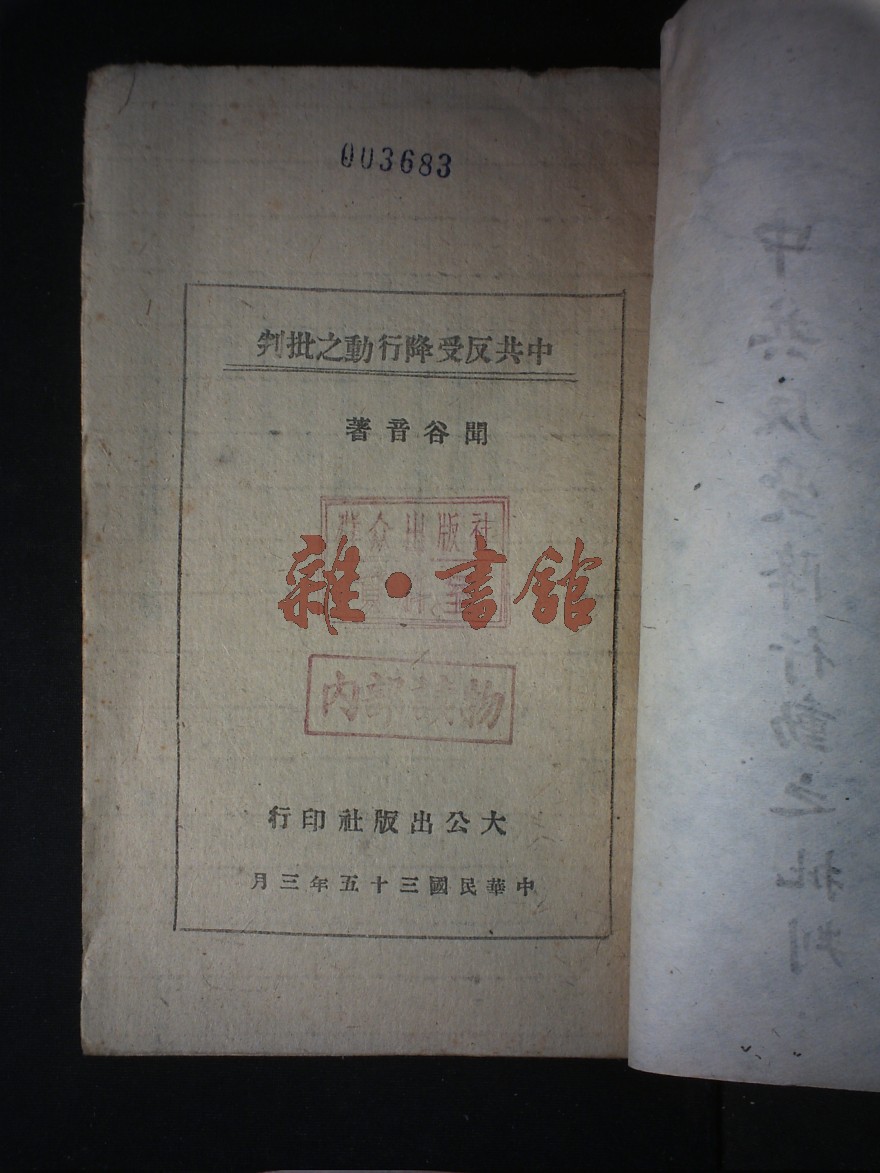 003683
中共反受降行動之批判
聞谷音著
群众出版社
雜·書館
内部读物
大公出版社印行
中華民國三十五年三月
中共反受降行動之批判